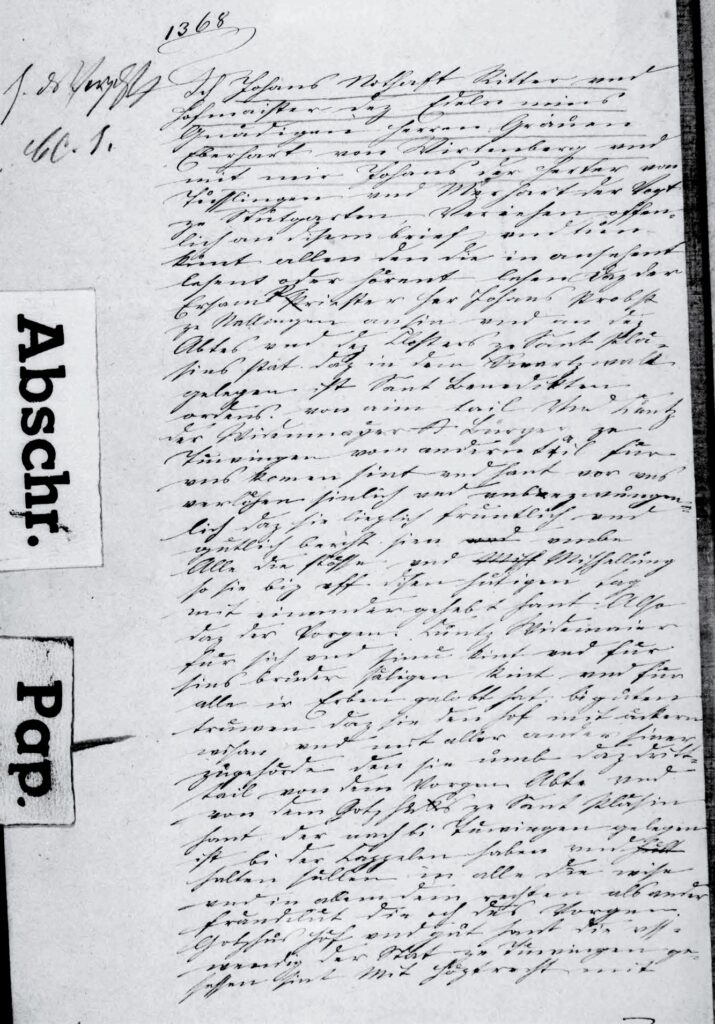 1368
Ich Johans Nothaft Ritter und
hofmaister dez Edeln mins
Gnädigen Herren Grauen
Eberhart von Wirtenberg und
mit mir Johans der Herter von
Tusslingen und Märhart der Vogt
ze Stutgarten, Veriehen offen-
lich an disem brief, und tuen
kunt allen den die in ansehent
lesent oder hörent lesen daz der
Ersam Priester her Johans Probst
ze Nallingen an sin und an dez
Abtes und dez Closters ze Sant Blä-
sins stat. daz in dem Swartzwalt
gelegen ist Sant Benedicten
ordens. von aim tail Und Cuntz
der Widenmayer Burger ze
Tuwingen vom andern tail fur
uns komen sint und hant vor uns
veriehen sinlich und unbezwungen-
lich daz sie lieplich fruntlich und
gutlich bericht sien umbe
Alle die stösse und Misshellung
so sie biz uff disen hutigen tag
mit einander gehebt hant. Also
daz der Vorgen. Cuntz Widemaier
fur sich und sinu kint und fur
sins bruder säligen kint und fur
alle ir Erben gelobt hat bi guten
truwen daz sie den hof mit äckern
wisan und mit aller ander siner
zugehörde den sie umb daz dritt-
tail von dem Vorgen Abte und
von dem Gotzhus ze Sant Bläsin
hant der nach bi Tuwingen gelegen
ist bi der Cappelen haben und
halten sullen in alle die wise
und in allem dem rechten als ander
die och des Vorgen.
Gotzhus hof und gut hant die uss-
wendig der Stat ze Tuwingen ge-
sessen sint Mit hoptrecht mit
Abschr.
Pap.